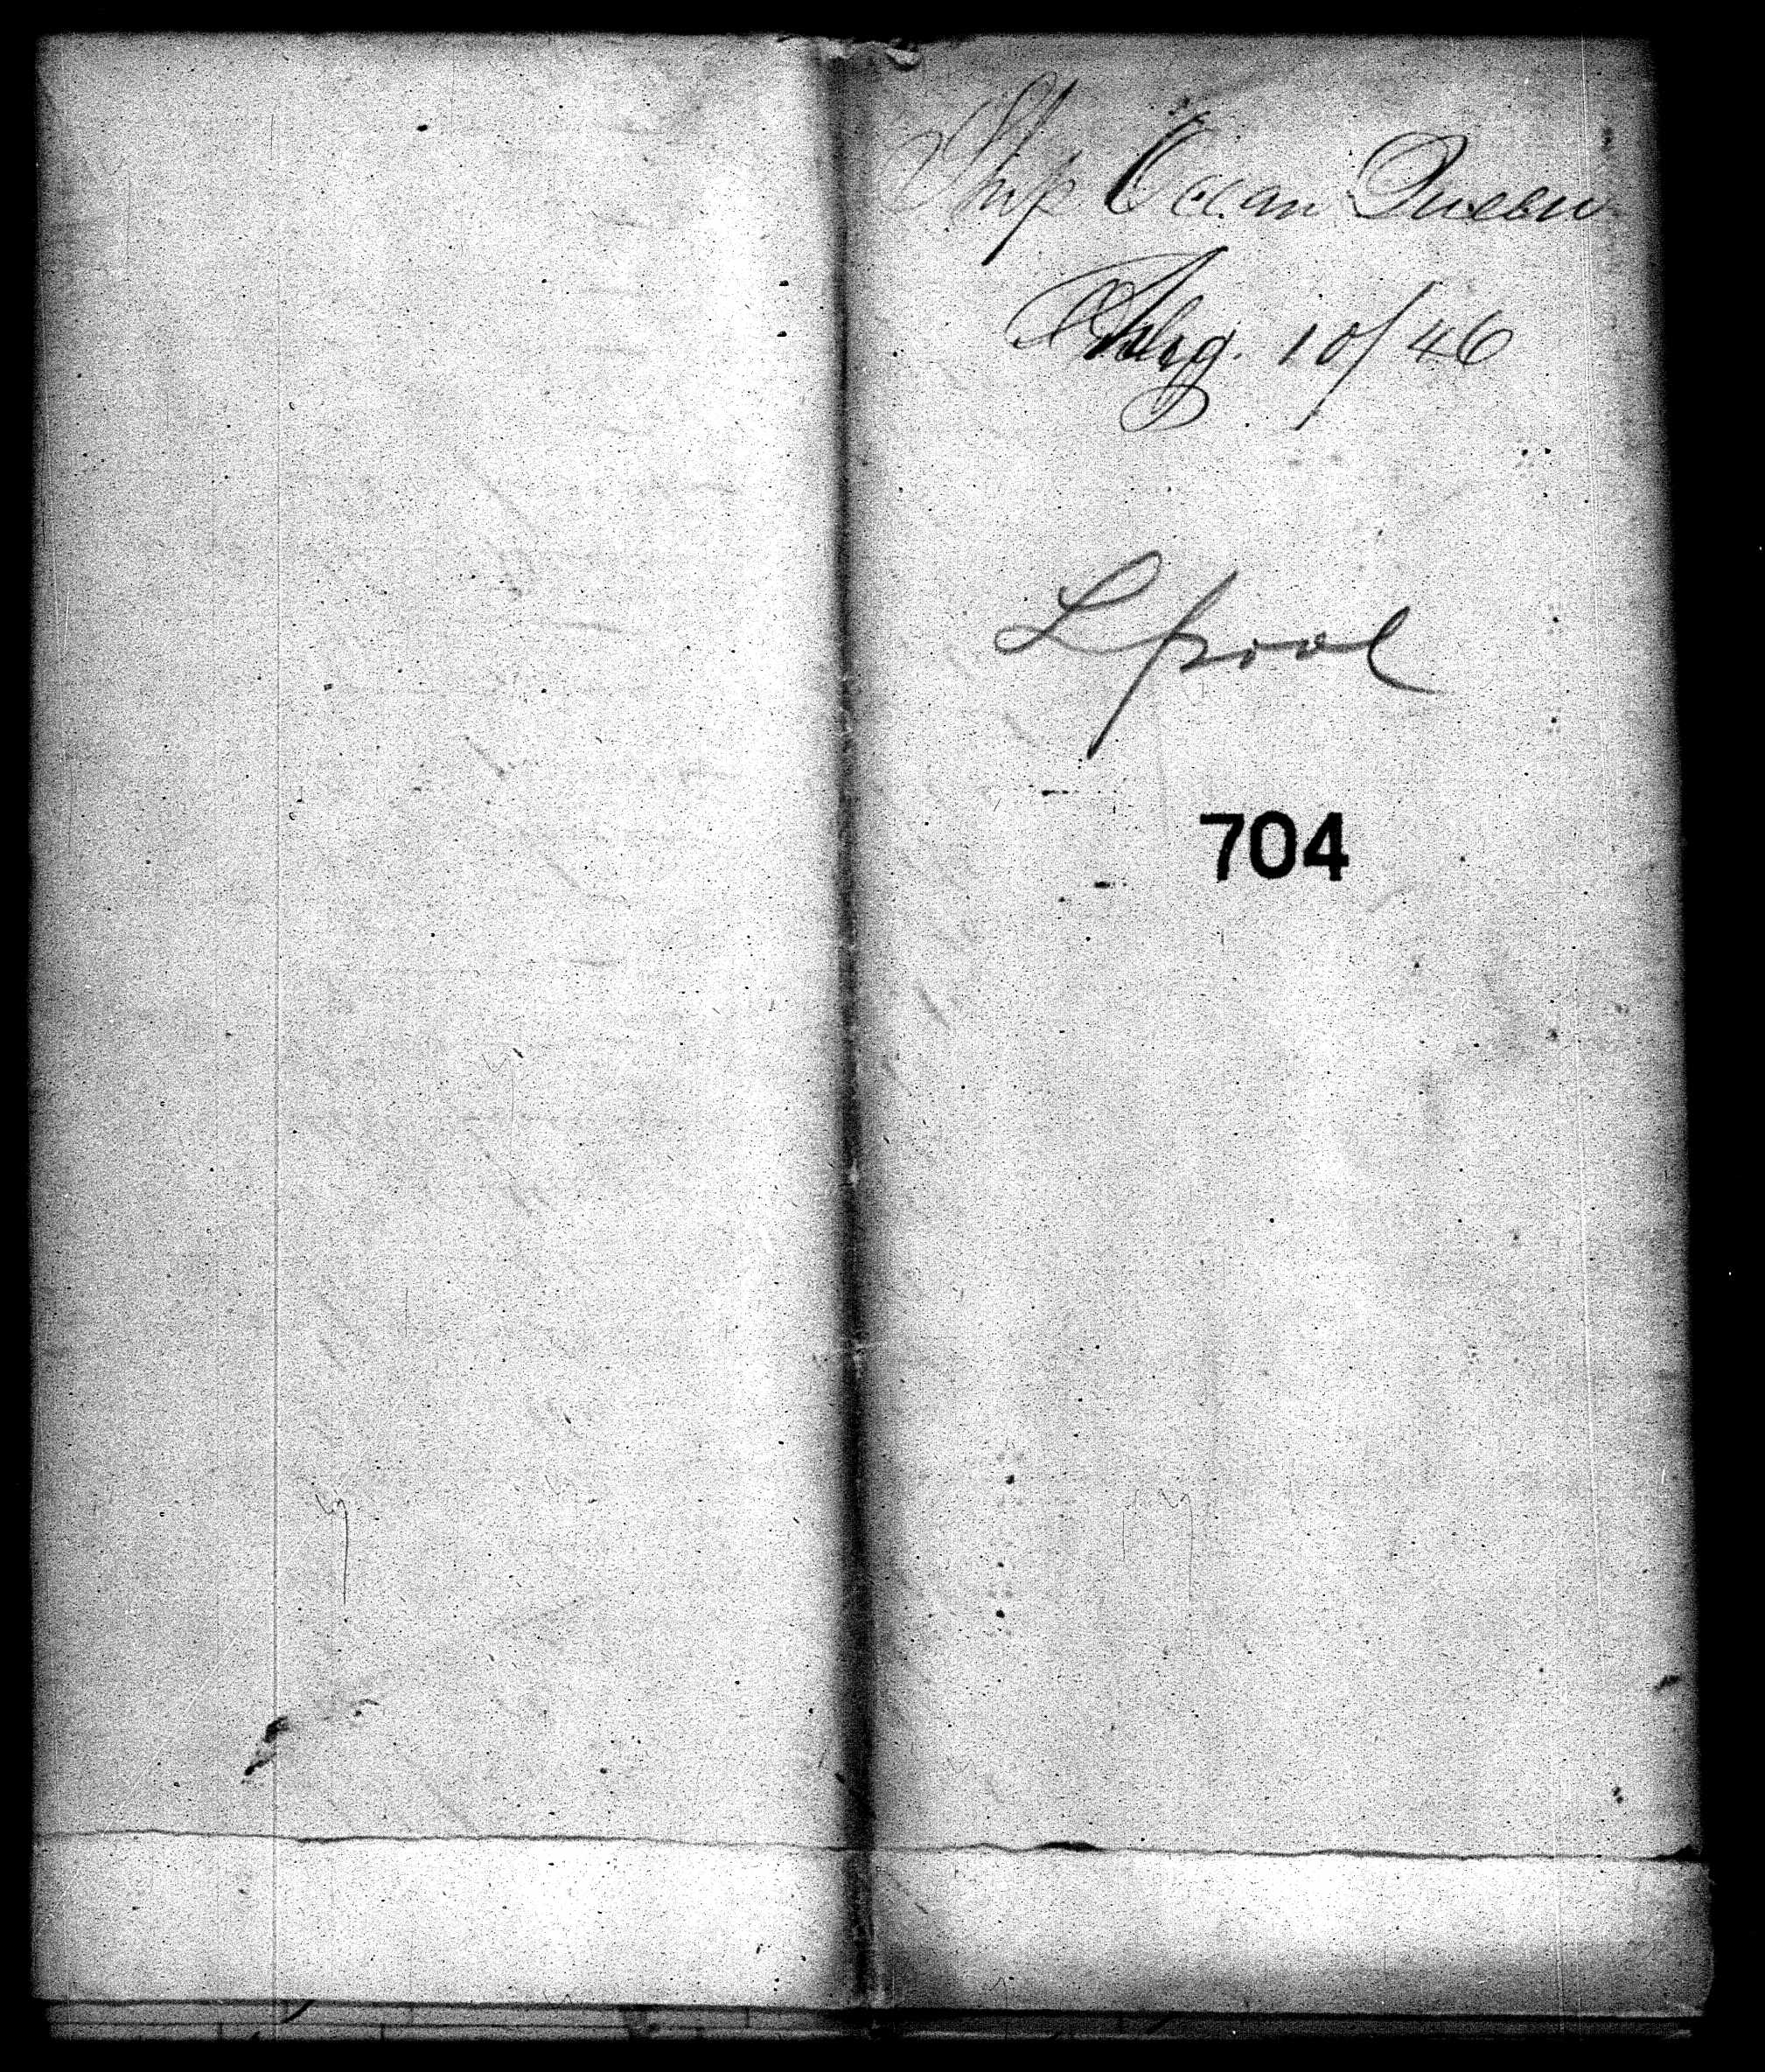 Ship Ocean Queen
Aug. 10/46
Lpool
704